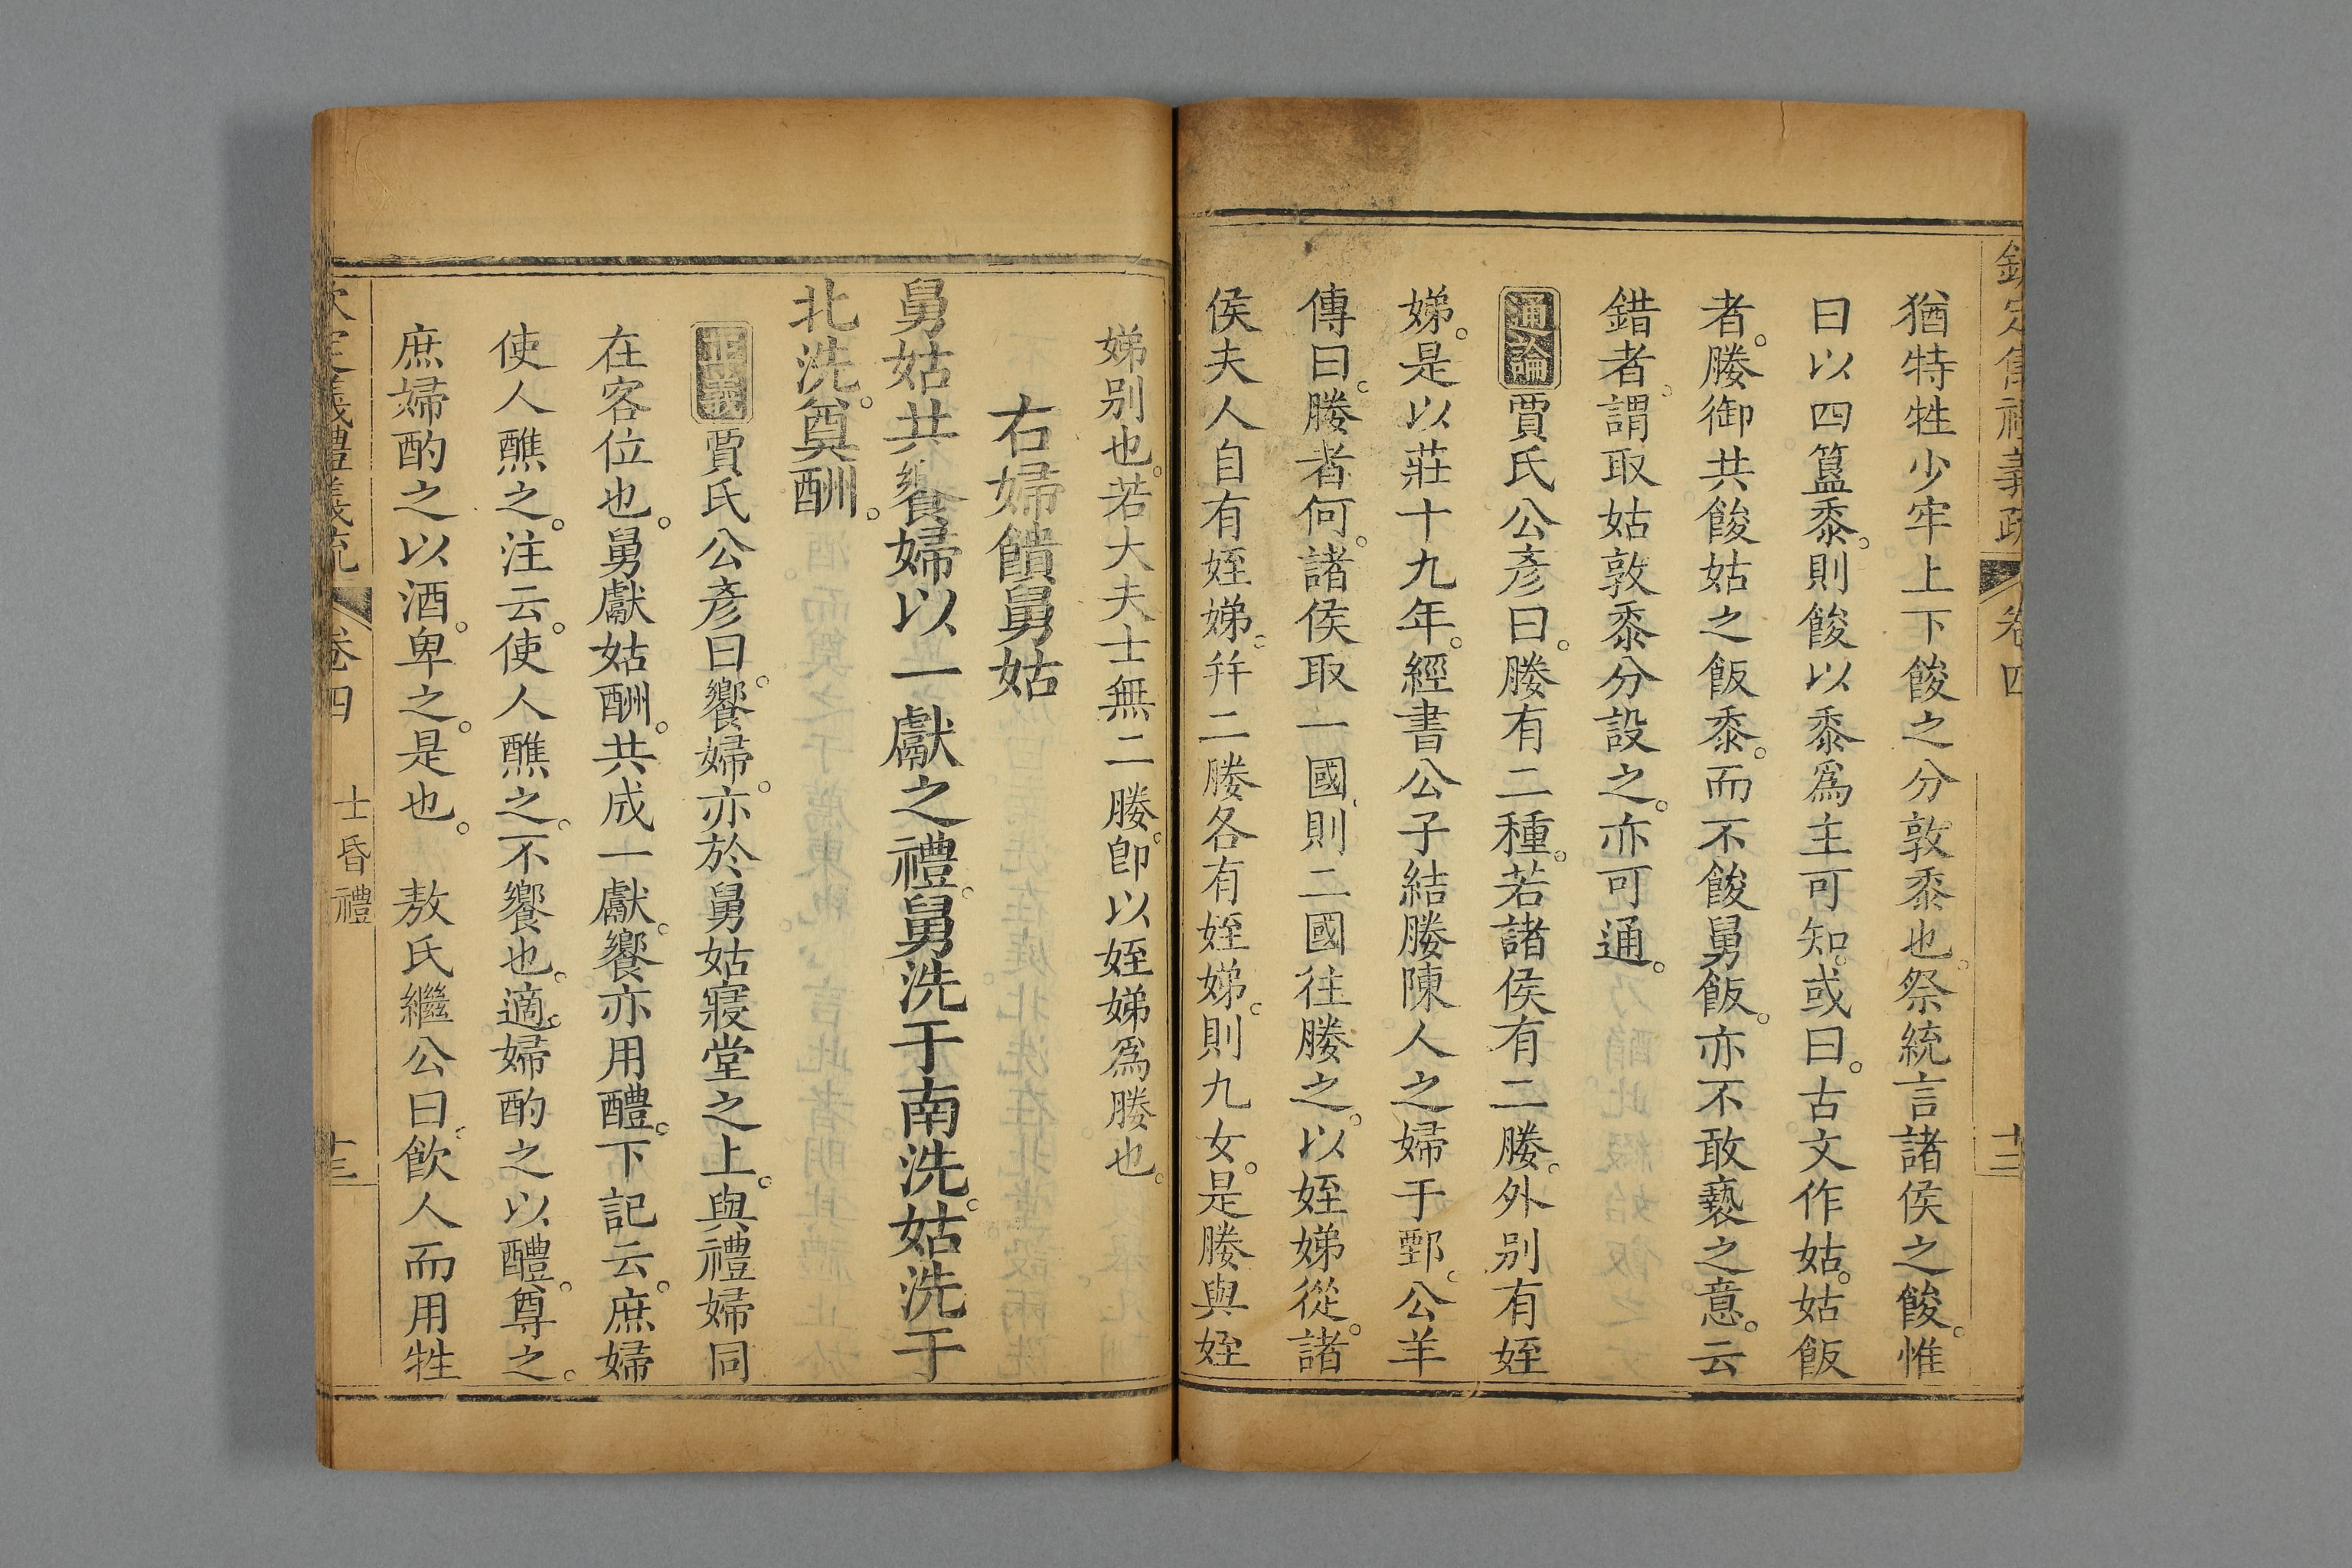 欽定儀禮義疏 卷四 十二
猶特牲少牢上下餕之分敦黍也祭統言諸侯之餕惟
曰以四簋黍則餕以黍爲主可知或曰古文作姑姑飯
者媵御共餕姑之飯黍而不餕舅飯亦不敢褻之意云
錯者謂取姑敦黍分設之亦可通
通論賈氏公彥曰媵有二種若諸侯有二媵外别有姪
娣是以莊十九年經書公子結媵陳人之婦于鄄公羊
傳曰媵者何諸侯取一國則二國往媵之以姪娣從諸
侯夫人自有姪娣幷二媵各有姪娣則九女是媵與姪
娣别也若大夫士無二媵卽以姪娣爲媵也
右婦饋舅姑
舅姑共饗婦以一獻之禮舅洗于南洗姑洗于
北洗奠酬
正義賈氏公彥曰饗婦亦於舅姑寢堂之上與禮婦同
在客位也舅獻姑酬共成一獻饗亦用醴下記云庶婦
使人醮之注云使人醮之不饗也適婦酌之以醴尊之
庶婦酌之以酒卑之是也 敖氏繼公曰飮人而用牲
欽定儀禮義疏 卷四 士昏禮 十三